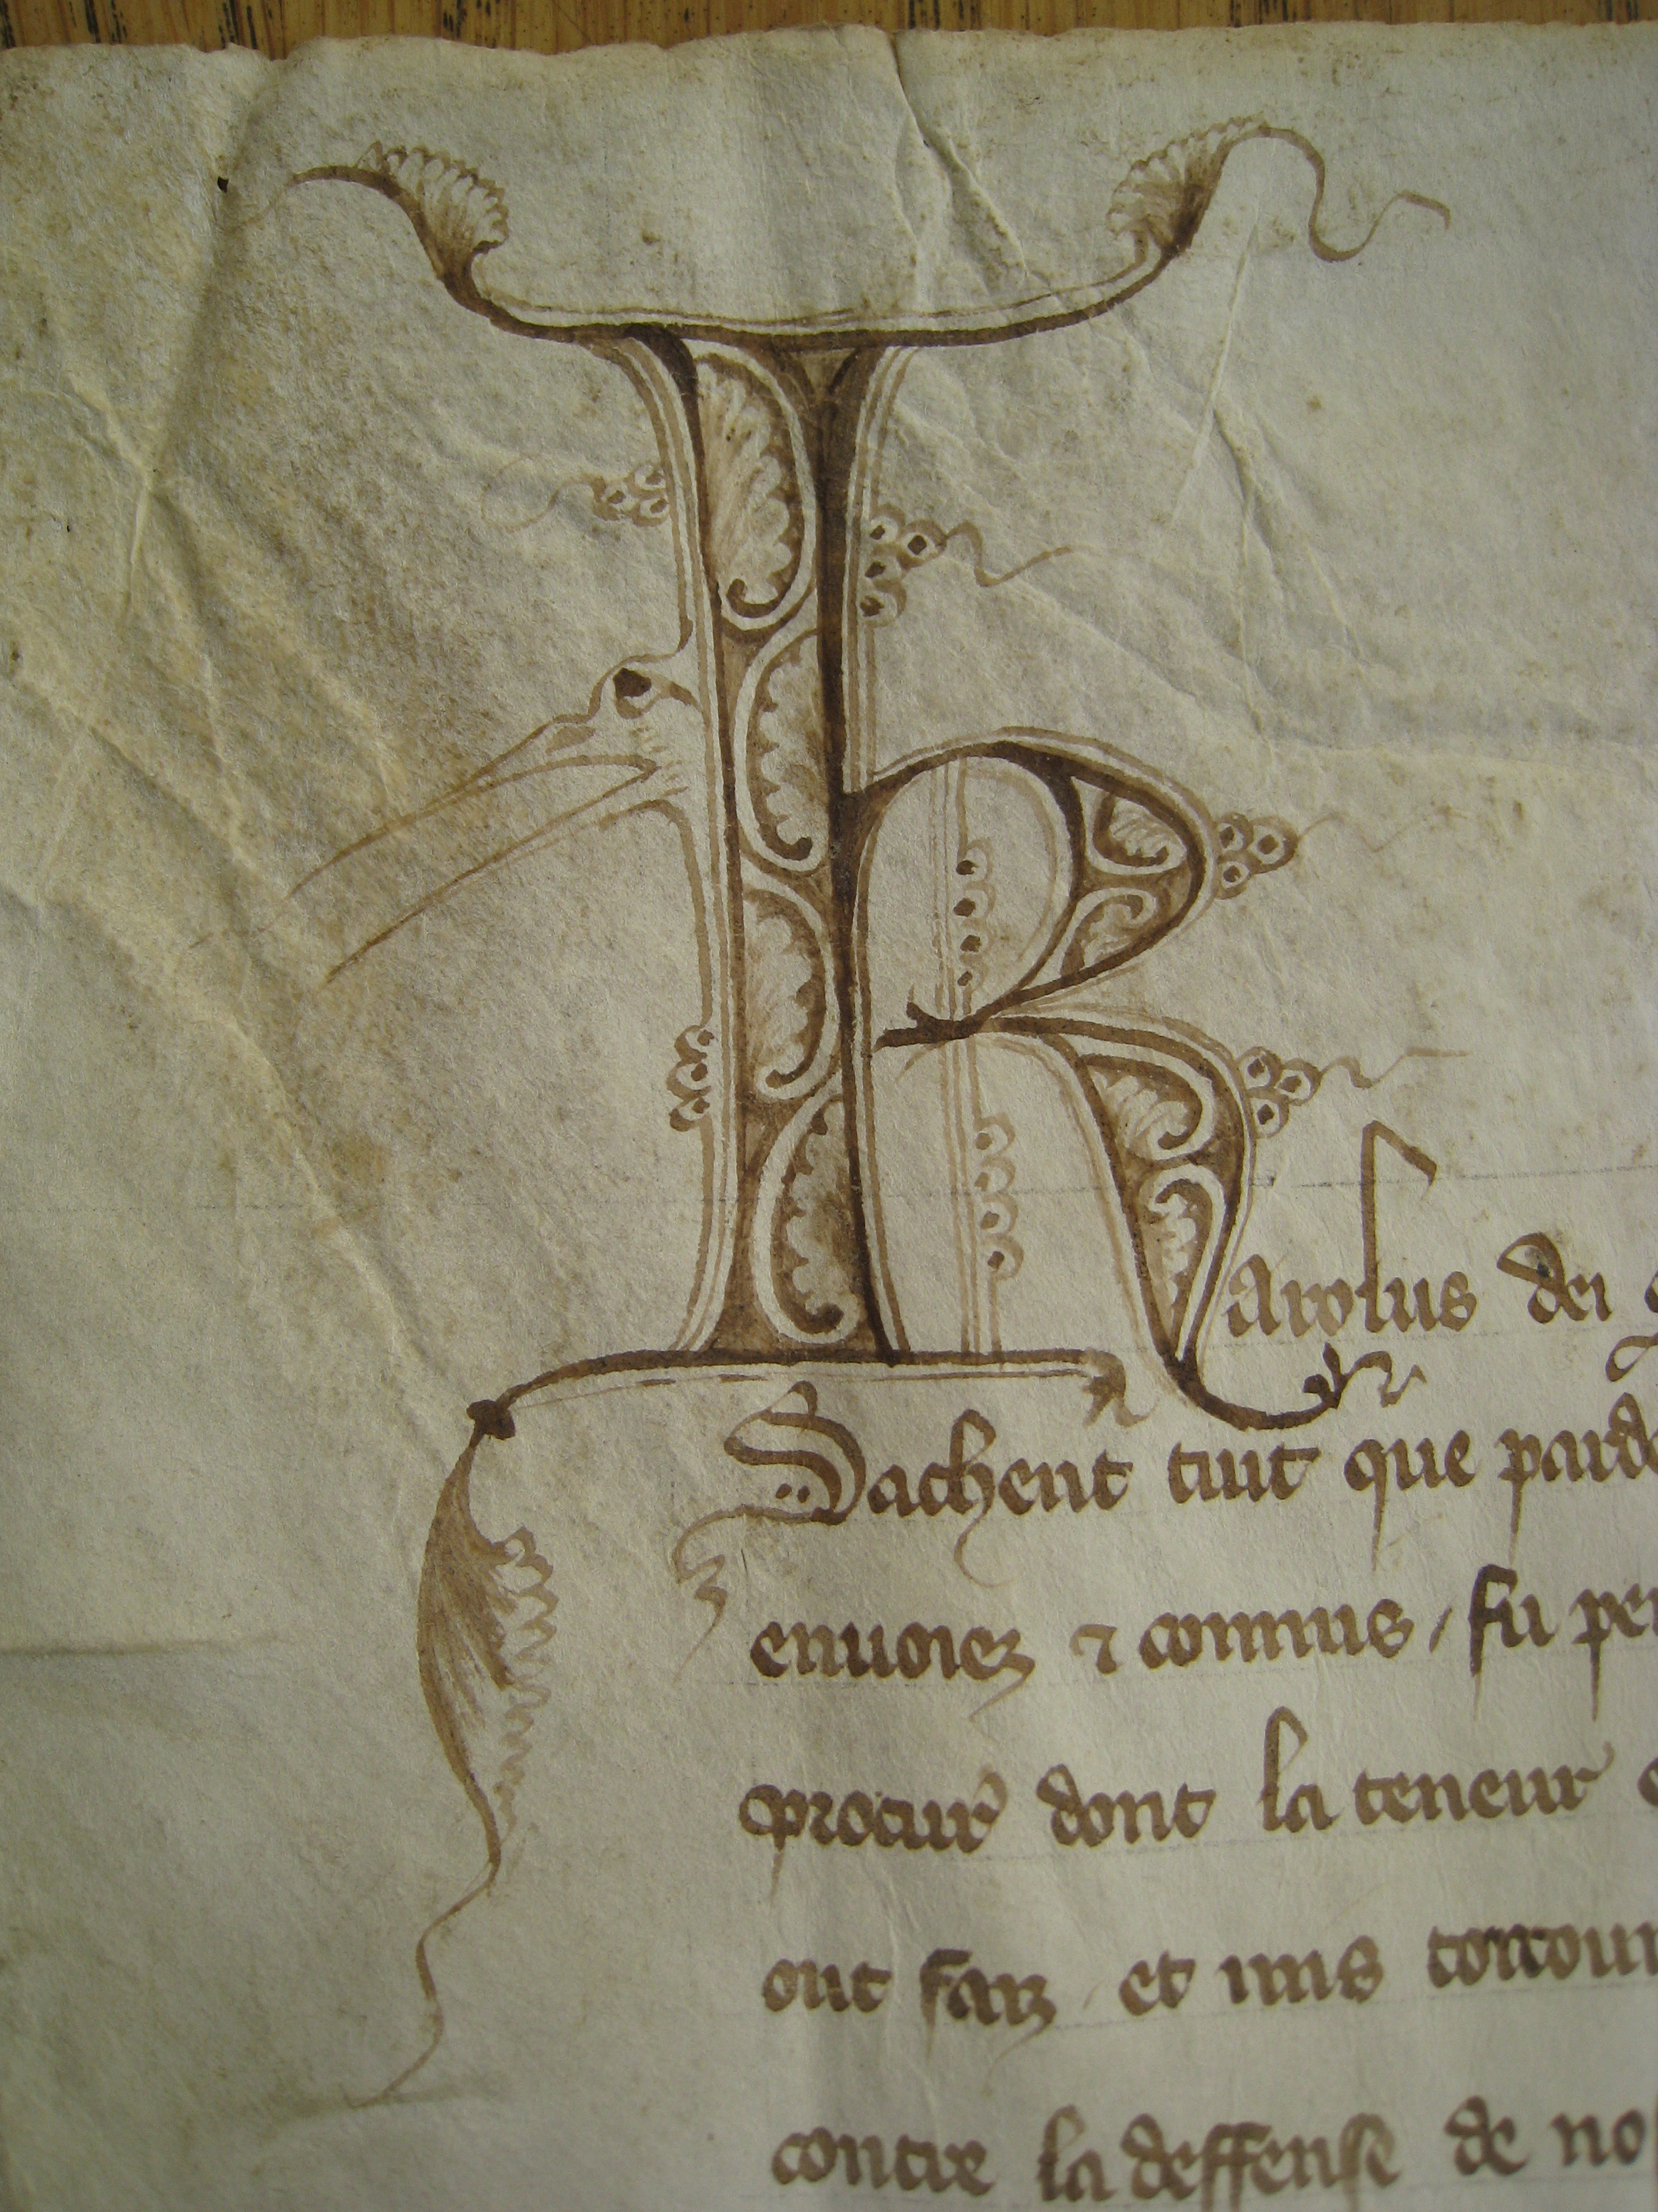 Karolus dei
Sachent tuit que pard
enuoiez ⁊ commis / fu
procur dont la teneur
ont faiz / et mis
contre la deffense de no